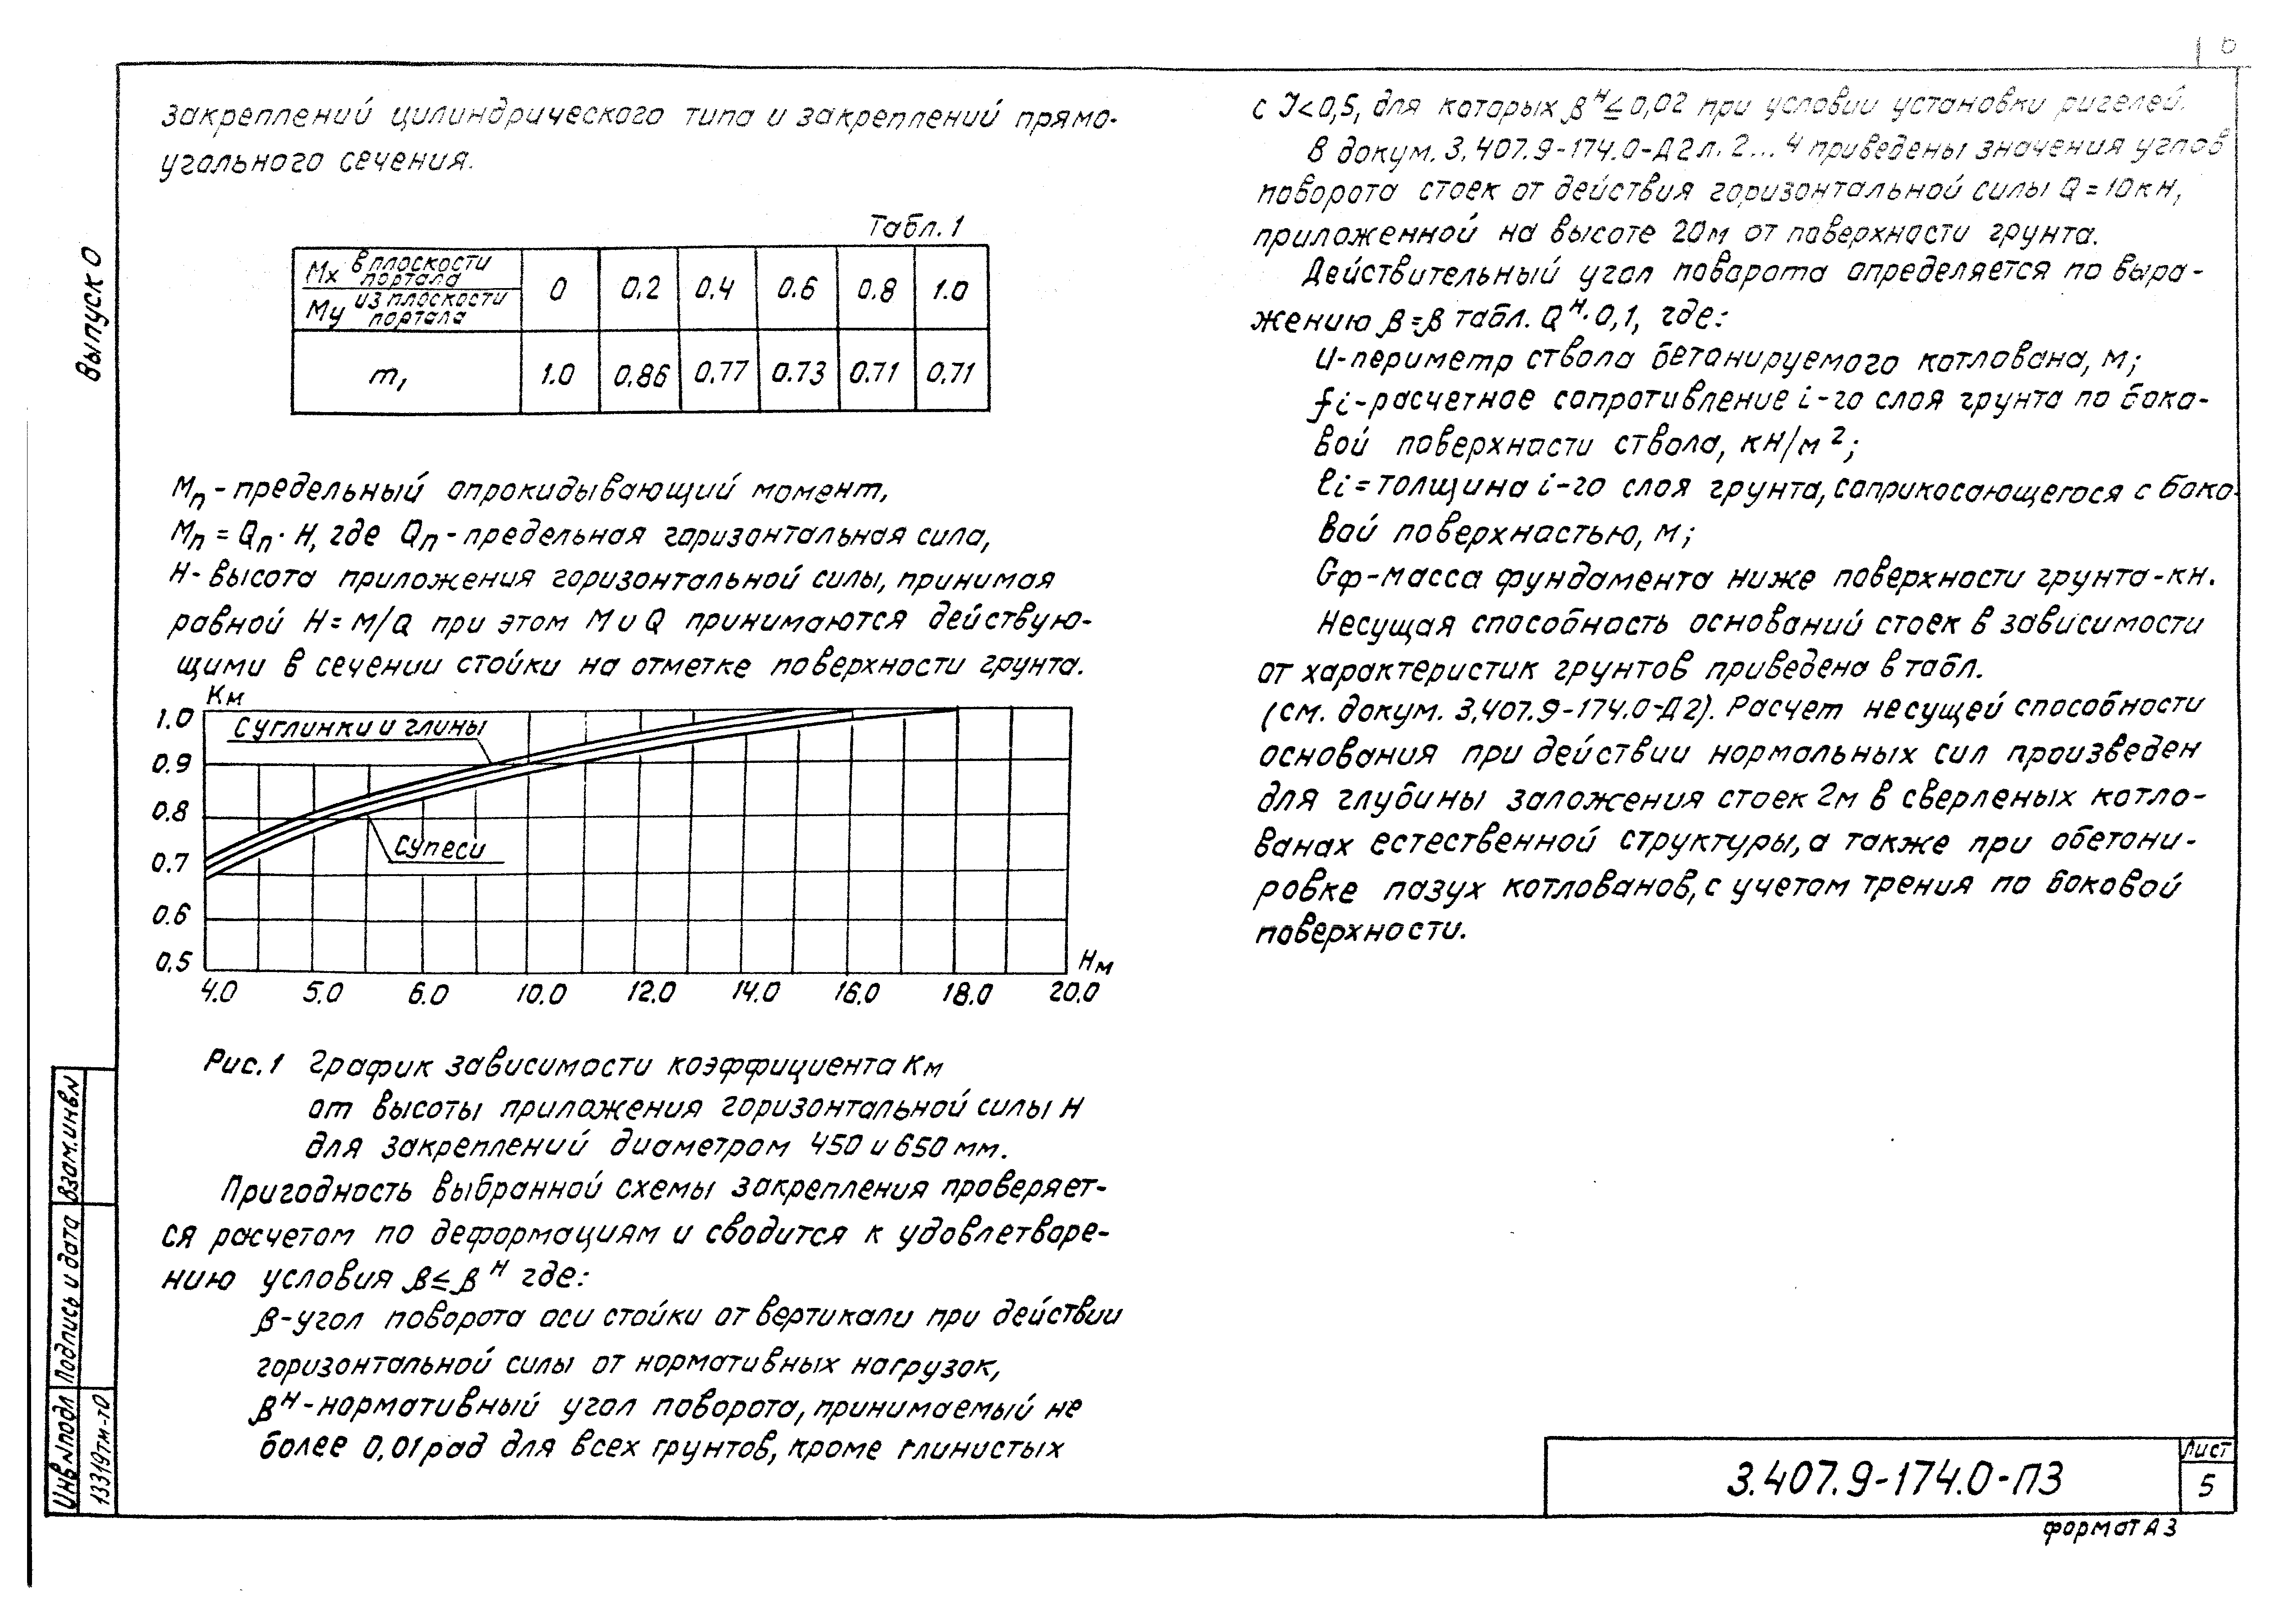 закреплений цилиндрического типа и закреплений прямо-
угольного сечения.
Табл. 1
Mx в плоскости портала
My из плоскости портала
0 0.2 0.4 0.6 0.8 1.0
m₁ 1.0 0.86 0.77 0.73 0.71 0.71
Mп - предельный опрокидывающий момент,
Mп = Qп · H, где Qп - предельная горизонтальная сила,
H - высота приложения горизонтальной силы, принимая
равной H = M/Q при этом M и Q принимаются действую-
щими в сечении стойки на отметке поверхности грунта.
Км
1.0
0.9
0.8
0.7
0.6
0.5
Суглинки и глины
Супеси
Нм
4.0 5.0 6.0 10.0 12.0 14.0 16.0 18.0 20.0
Рис. 1 График зависимости коэффициента Км
от высоты приложения горизонтальной силы H
для закреплений диаметром 450 и 650 мм.
Пригодность выбранной схемы закрепления проверяет-
ся расчетом по деформациям и сводится к удовлетворе-
нию условия β ≤ βᴴ где:
β - угол поворота оси стойки от вертикали при действии
горизонтальной силы от нормативных нагрузок,
βᴴ - нормативный угол поворота, принимаемый не
более 0,01 рад для всех грунтов, кроме глинистых
с J<0,5, для которых βᴴ ≤ 0,02 при условии установки ригелей.
В докум. 3.407.9-174.0-Д2 л. 2...4 приведены значения углов
поворота стоек от действия горизонтальной силы Q = 10 кн,
приложенной на высоте 20м от поверхности грунта.
Действительный угол поворота определяется по выра-
жению β = β табл. Qᴴ · 0,1, где:
U - периметр ствола бетонируемого котлована, м;
fi - расчетное сопротивление i-го слоя грунта по боко-
вой поверхности ствола, кн/м²;
ℓi = толщина i-го слоя грунта, соприкосающегося с боко-
вой поверхностью, м;
Gф - масса фундамента ниже поверхности грунта - кн.
Несущая способность оснований стоек в зависимости
от характеристик грунтов приведена в табл.
(см. докум. 3.407.9-174.0-Д2). Расчет несущей способности
основания при действии нормальных сил произведен
для глубины заложения стоек 2м в сверленых котло-
ванах естественной структуры, а также при обетони-
ровке пазух котлованов, с учетом трения по боковой
поверхности.
Выпуск 0
Взам. инв. N
Подпись и дата
Инв N подл
13319тм-т0
3.407.9-174.0-ПЗ
Лист
5
формат А3